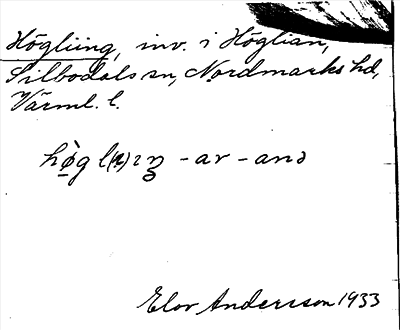 Högliing, inv. i Höglian,
Silbodals sn, Nordmarks hd,
Värml. l.
-ar -anə
Elov Andersson 1933